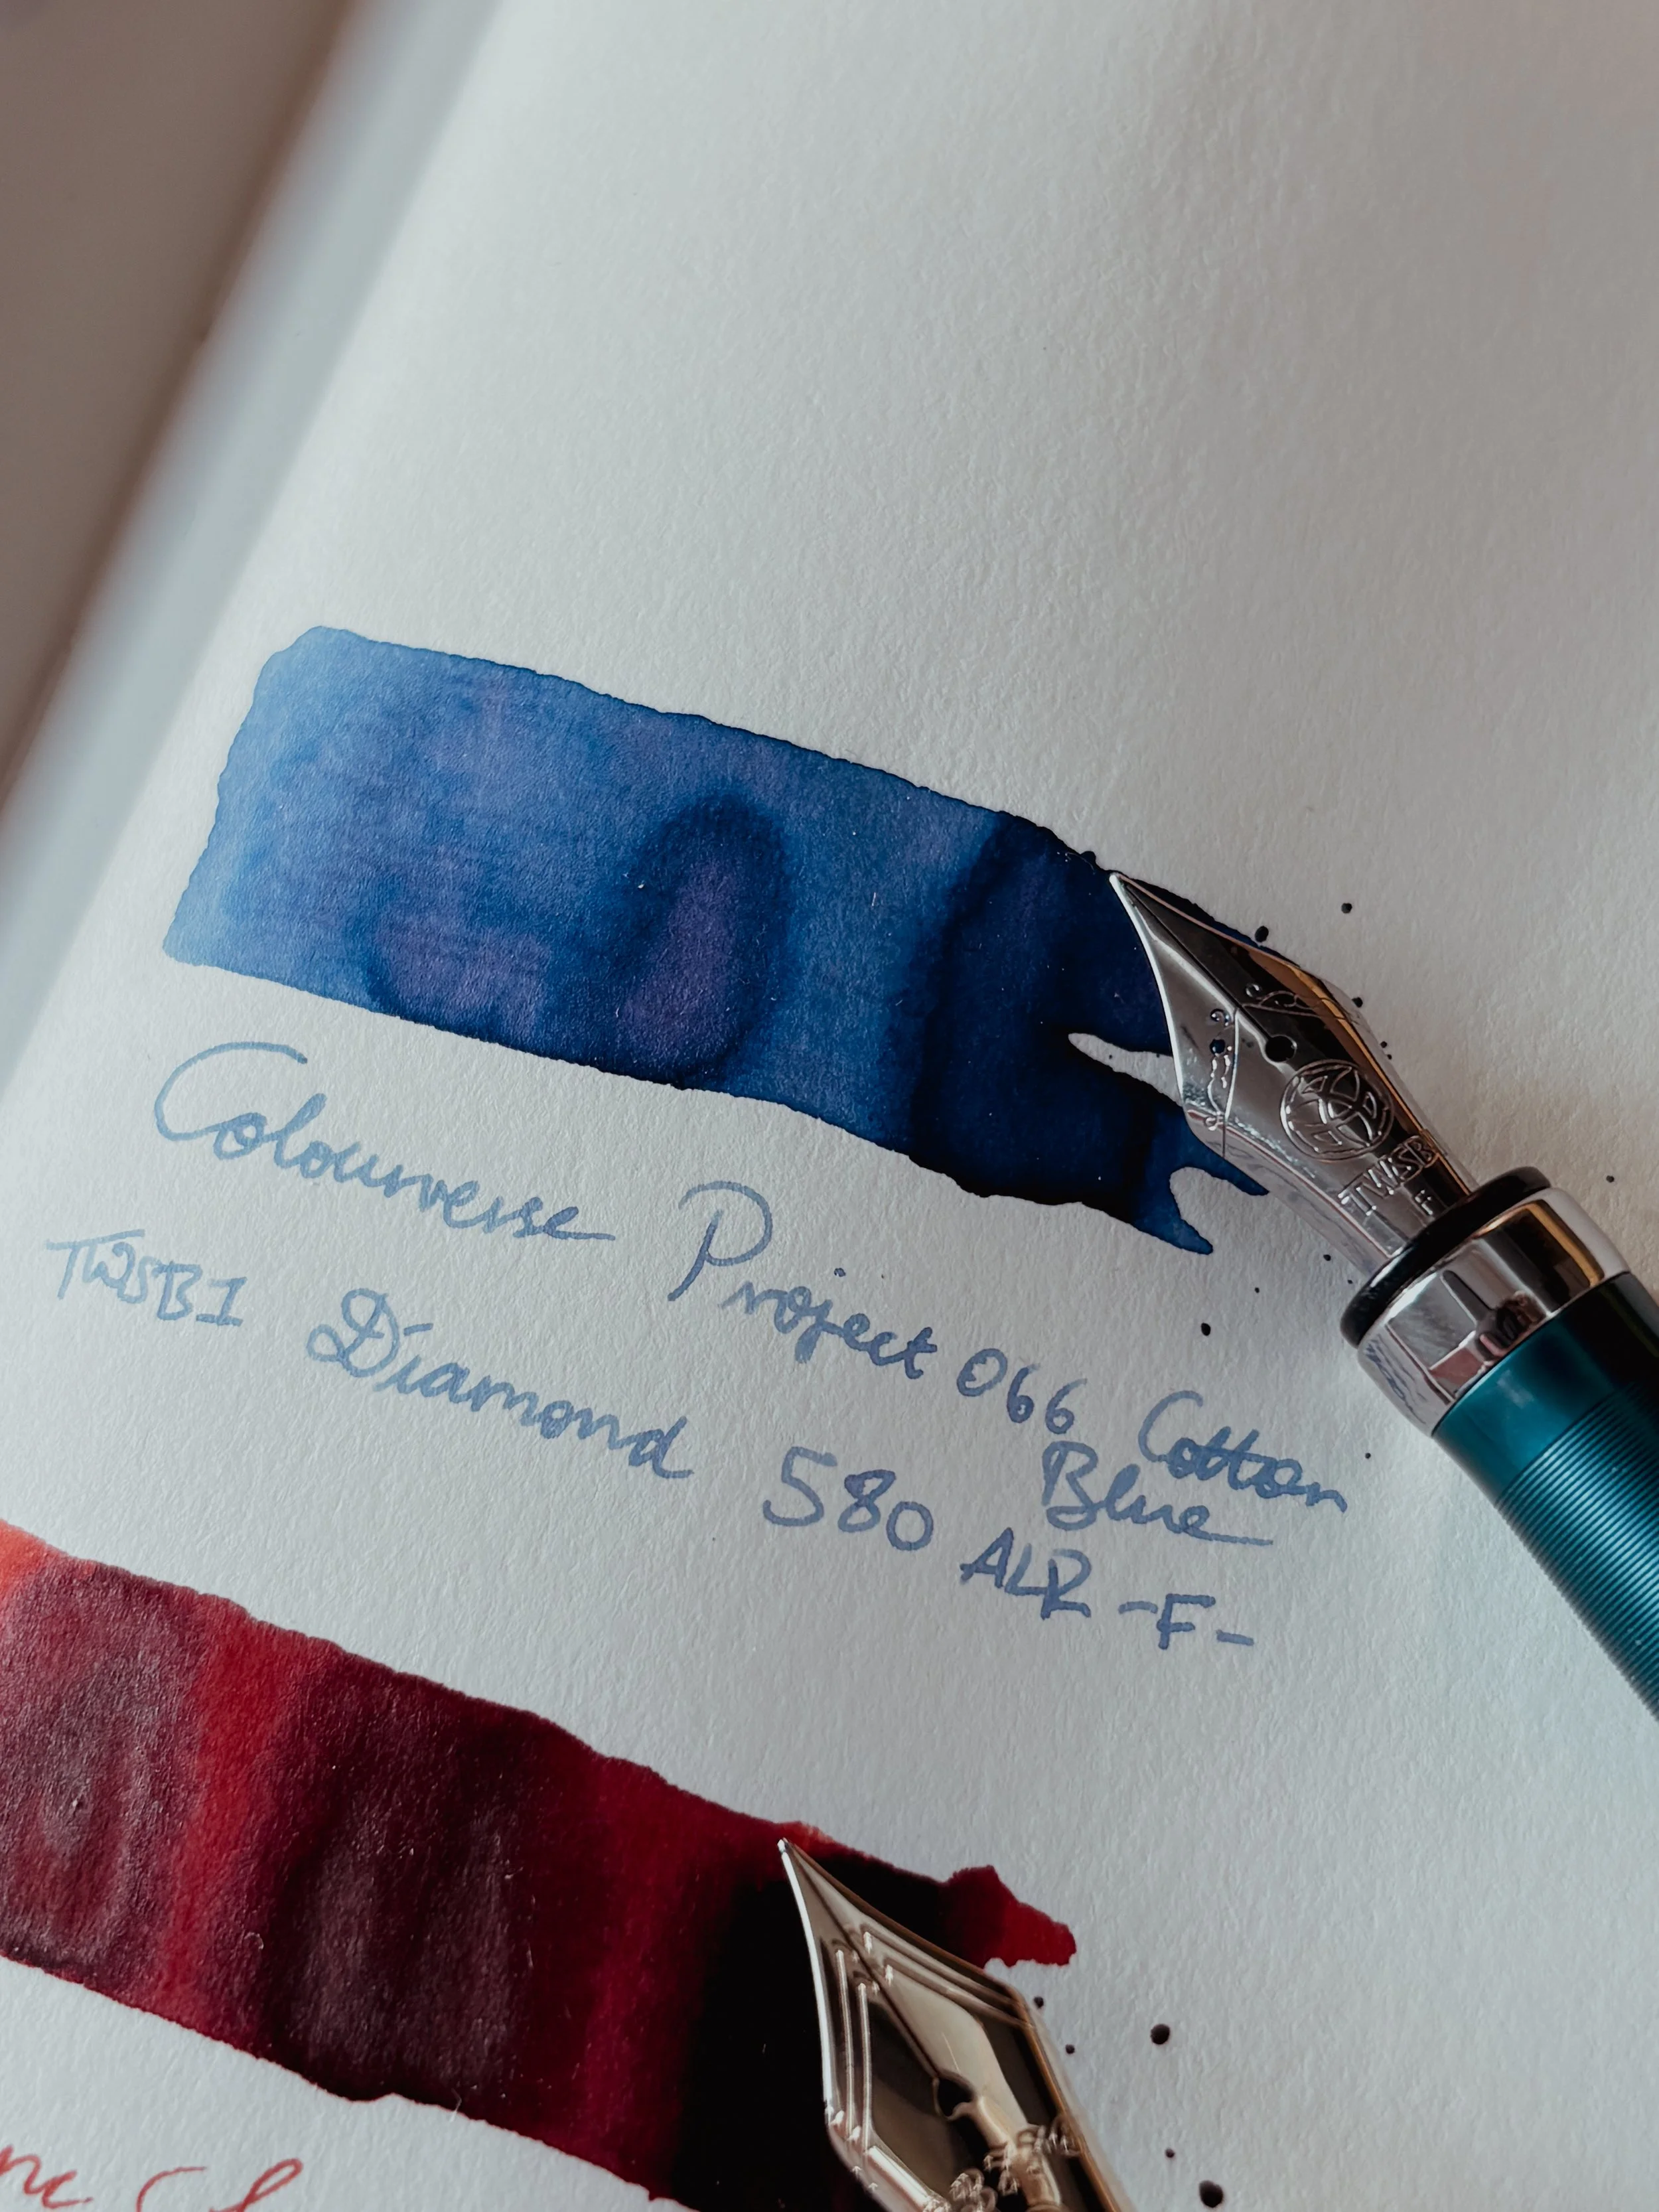 TWSBI
F
Colourverse Project 066 Cotton
Blue
TWSBI Diamond 580 ALR -F-